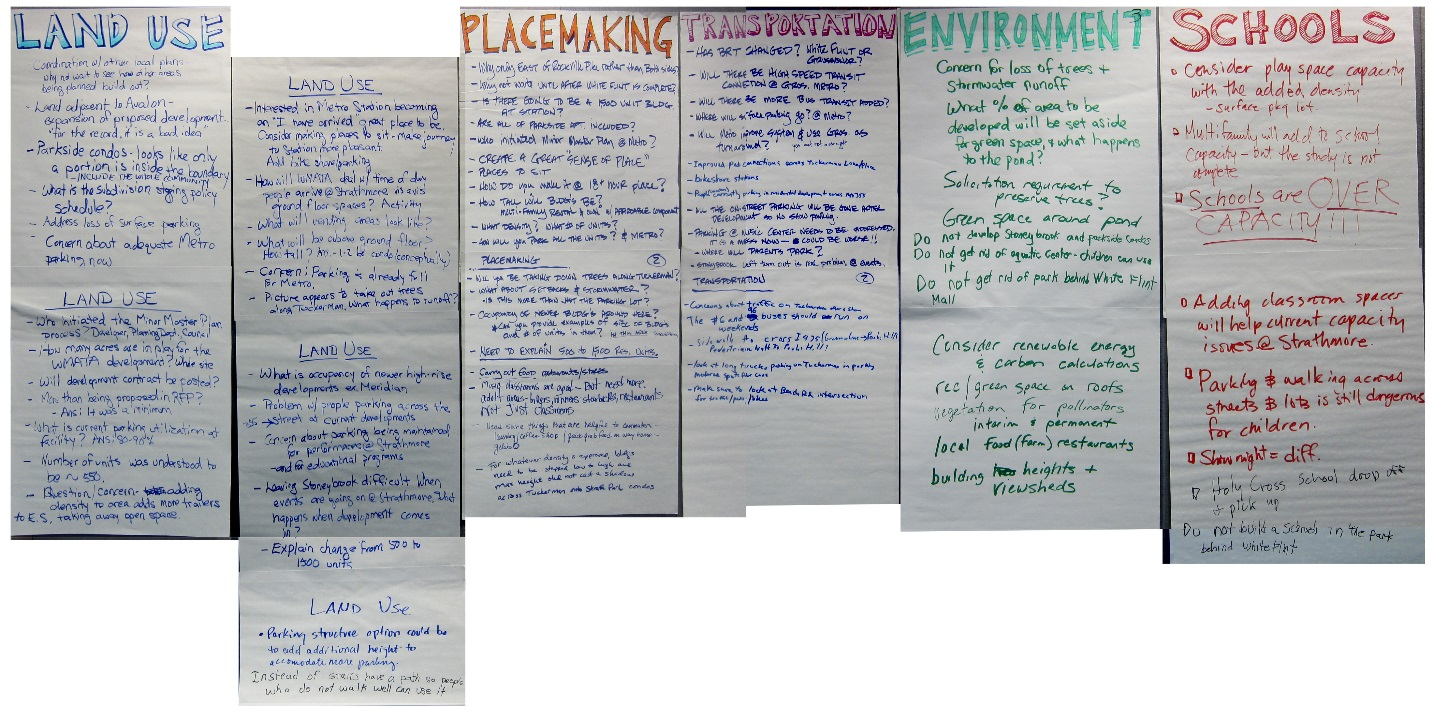 LAND USE
Coordination w/ other local plans
Why not wait to see how other areas
being planned build out?
- Land adjacent to Avalon -
expansion of proposed development.
"for the record, it is a bad idea"
- Parkside condos - looks like only
a portion is inside the boundary
- include the whole community
- What is the subdivision staging policy
schedule?
- Address loss of surface parking
- Concern about adequate Metro
parking now
LAND USE
- Who initiated the Minor Master Plan
process? Developer, Planning Dept, Council
- How many acres are in play for the
WMATA development? Whole site
- Will development contract be posted?
- More than being proposed in RFP?
- Ans: It was a minimum
- What is current parking utilization at
facility? Ans: 80-90%
- Number of units was understood to
be ~ 550.
- Question/concern - adding
density to area adds more trailers
to E.S., taking away open space.
LAND USE
- Interested in Metro Station becoming
an "I have arrived" great place to be.
Consider making places to sit - make journey
to Station more pleasant.
Add bike share/parking
- How will WMATA deal w/ time of day
people arrive @ Strathmore vis a vis
ground floor spaces? Activity
- What will vending areas look like?
- What will be above ground floor?
How tall? Ans - 1-2 be condo (conceptually)
- Concern: Parking is already full
for Metro.
- Picture appears to take out trees
along Tuckerman. What happens to runoff?
LAND USE
- What is occupancy of newer high-rise
developments ex. Meridian
- Problem w/ people parking across the
street at current developments
- Concern about parking being maintained
for performances @ Strathmore
and for educational programs
- Leaving Stoneybrook difficult when
events are going on @ Strathmore, What
happens when development comes
in?
- Explain change from 500 to
1500 units
LAND USE
• Parking structure option could be
to add additional height to
accomodate more parking.
Instead of stairs have a path so people
who do not walk well can use it
PLACEMAKING
- Why only EAST of Rockville Pike rather than Both sides?
- Why not wait until after White Flint is complete?
- IS THERE GOING TO BE A 1500 UNIT BLDG
AT STATION?
- ARE ALL OF PARKSIDE APT. INCLUDED?
- Who initiated Minor Master Plan @ Metro?
- CREATE A GREAT "SENSE OF PLACE"
- PLACES TO SIT
- HOW DO YOU MAKE IT @ 18+ HOUR PLACE?
- HOW TALL WILL BLDG'S BE?
MULTI-FAMILY RENTAL & OWN w/ AFFORDABLE COMPONENT
- WHAT DENSITY? WHAT IS # OF UNITS?
- CAN WILL YOU PARK ALL THE UNITS? & METRO?
PLACEMAKING 2
- WILL YOU BE TAKING DOWN TREES ALONG TUCKERMAN?
- WHAT ABOUT SETBACKS & STORMWATER?
- IS THIS MORE THAN WHAT THE PARKING LOT?
- OCCUPANCY OF NEWER BLDG'S AROUND HERE?
* CAN YOU PROVIDE EXAMPLES OF SIZE OF BLDG'S
AND # OF UNITS IN THEM?
- NEED TO EXPLAIN 500 to 1500 RES. UNITS.
- Carry out food restaurants/stores
- Many classrooms are good - But need more
adult areas - buyers, dinners, starbucks, restaurants
Not Just Classrooms
- Need some things that are helpful to commuters -
- For whatever density is approved, bldgs
need to be stepped low to high and
max height did not cast a shadow
across Tuckerman into Strath Park condos
TRANSPORTATION
- HAS BRT CHANGED? WHITE FLINT OR
GROSVENOR?
- WILL THERE BE HIGH SPEED TRANSIT
CONNECTION @ GROS. METRO?
- WILL THERE BE MORE BUS TRANSIT ADDED?
- WHERE WILL surface parking go? @ Metro?
- Will Metro improve system & use Gros. as
turnaround?
- Improved ped connections across Tuckerman Lane
- bikeshare stations
- WILL THE ON-STREET PARKING WILL BE GONE AFTER
DEVELOPMENT SO NO SHOW PARKING.
- PARKING @ MUSIC CENTER NEEDS TO BE ADDRESSED.
IT IS A MESS NOW - COULD BE WORSE!!
- WHERE WILL PARENTS PARK?
- STONEYBROOK left turn out is real problem @ events.
TRANSPORTATION 2
- Concerns about traffic on Tuckerman
The #6 and 96 buses should run on
weekends
- look at long trucks parking on Tuckerman
- make sure to look at Beach Rd. intersection
for cross/ped/bikes
ENVIRONMENT
Concern for loss of trees +
stormwater runoff
What % of area to be
developed will be set aside
for green space, & what happens
to the pond?
Solicitation requirement to
preserve trees?
Green space around pond
Do not develop Stoneybrook and parkside Condos
Do not get rid of aquatic center - children can use
it
Do not get rid of park behind White Flint
Mall
Consider renewable energy
& carbon calculations
rec/green space on roofs
vegetation for pollinators
interim & permanent
local food (farm) restaurants
building heights +
viewsheds
SCHOOLS
Consider play space capacity
with the added density
- Surface pkg lot.
Multifamily will add to school
capacity - but the study is not
complete
Schools are OVER
CAPACITY!!!
Adding classroom spaces
will help current capacity
issues @ Strathmore.
Parking & walking across
streets & lots is still dangerous
for children.
Show night = diff.
Holy Cross School drop off
+ pick up
Do not build a School in the park
behind White Flint